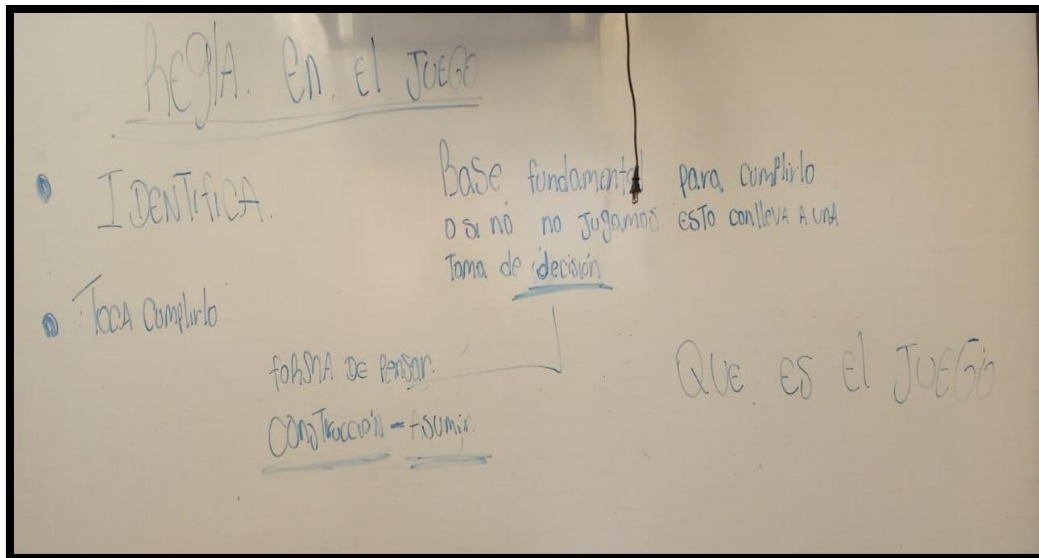 REGlA. En. El JUEGO
IDENTIFICA.
Base fundamental para cumplirlo
o si nó no jugamos ESTO conlleva A UNA
Toma de decisión
TOCA Cumplirlo
FORMA DE Pensar.
CONSTRUCCIÓN - Asumir.
QUE ES El JUEGO